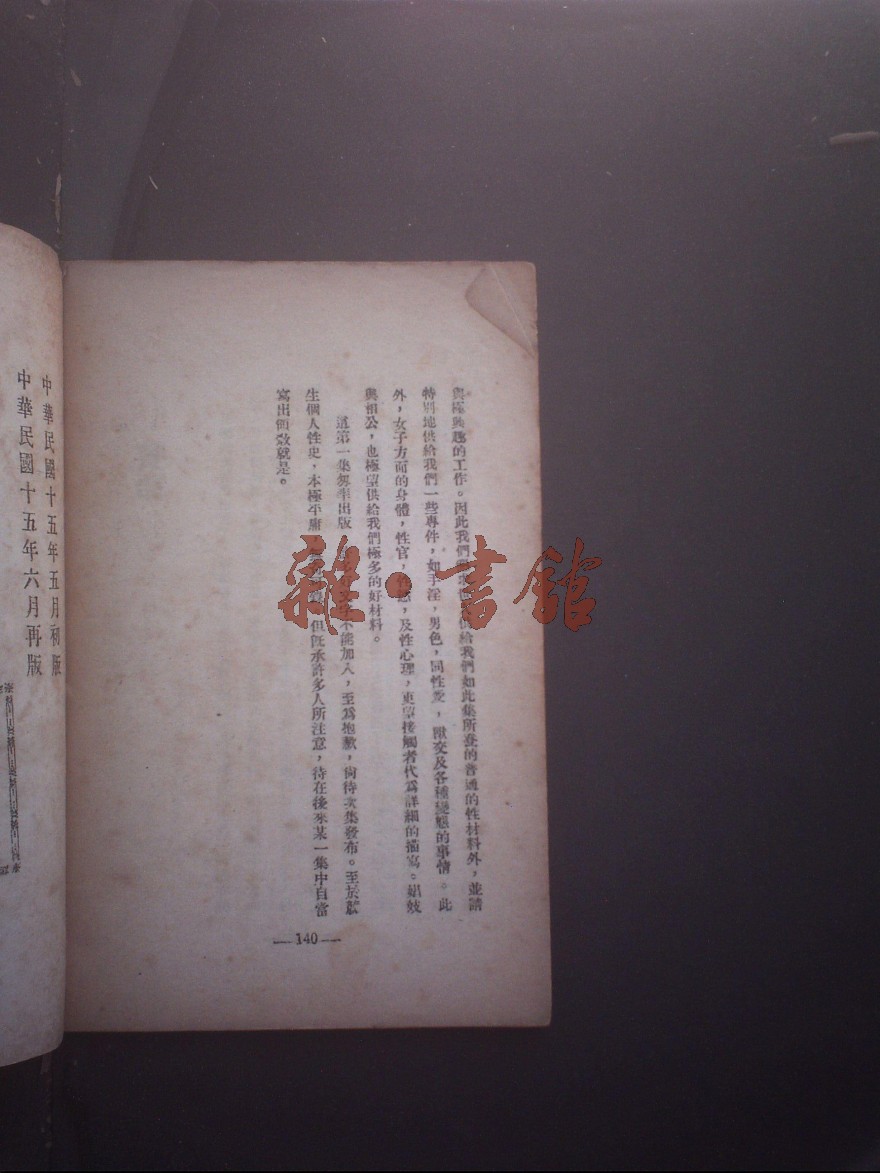 與極興趣的工作。因此我們
供給我們如此集所登的普通的性材料外，並請
特別地供給我們一些專件，如手淫，男色，同性愛，獸交及各種變態的事情。此
外，女子方面的身體，性官，
及性心理，更望接觸者代為詳細的描寫。娼妓
與相公，也極望供給我們極多的好材料。
這第一集匆率出版
不能加入，至為抱歉，尚待次集發布。至於
生個人性史，本極平庸
但既承許多人所注意，待在後來某一集中自當
寫出
就是。
—140—
中華民國十五年五月初版
中華民國十五年六月再版
雜·書館